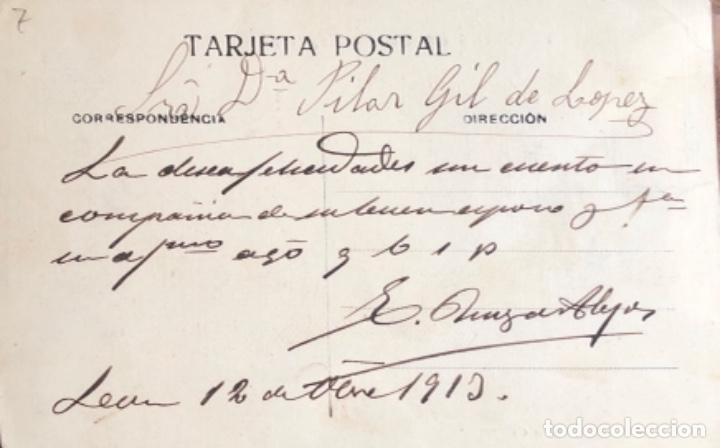 7
TARJETA POSTAL
Sra Dª Pilar Gil de Lopez
CORRESPONDENCIA
DIRECCIÓN
La desea felicidades sin cuento en
compañia de su buen esposo y fa
su afmo
q b s p
E.
Leon 12 de 1913.
todocoleccion